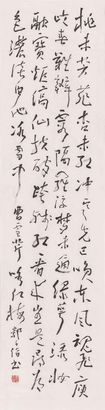 桃未芳菲杏未红冲寒先已笑东风魂飞庾
岭春難辨霞隔羅浮夢未通綠萼添妝
融寶炬縞仙扶醉跨殘虹看来豈是尋常
色濃淡由他冰雪中 曹雪芹咏红梅